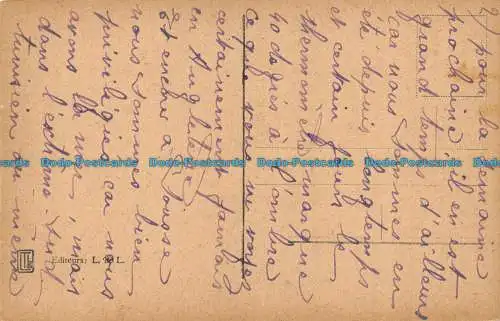 pour la semaine
prochaine il en est
grand temps d'ailleurs
car nous sommes en
été depuis longtemps
et certain jour le
thermomètre marque
40 degrés à l'ombre
Ce que vous ne voyez
certainement jamais
en Angleterre
et encore à Sousse
nous sommes bien
privilégiés car nous
avons la mer, mais
dans l'extrême-sud
tunisien de même
Editeurs: L. & L.
Dodo-Postcards Dodo-Postcards Dodo-Postcards Dodo-Postcards Dodo-Postcards